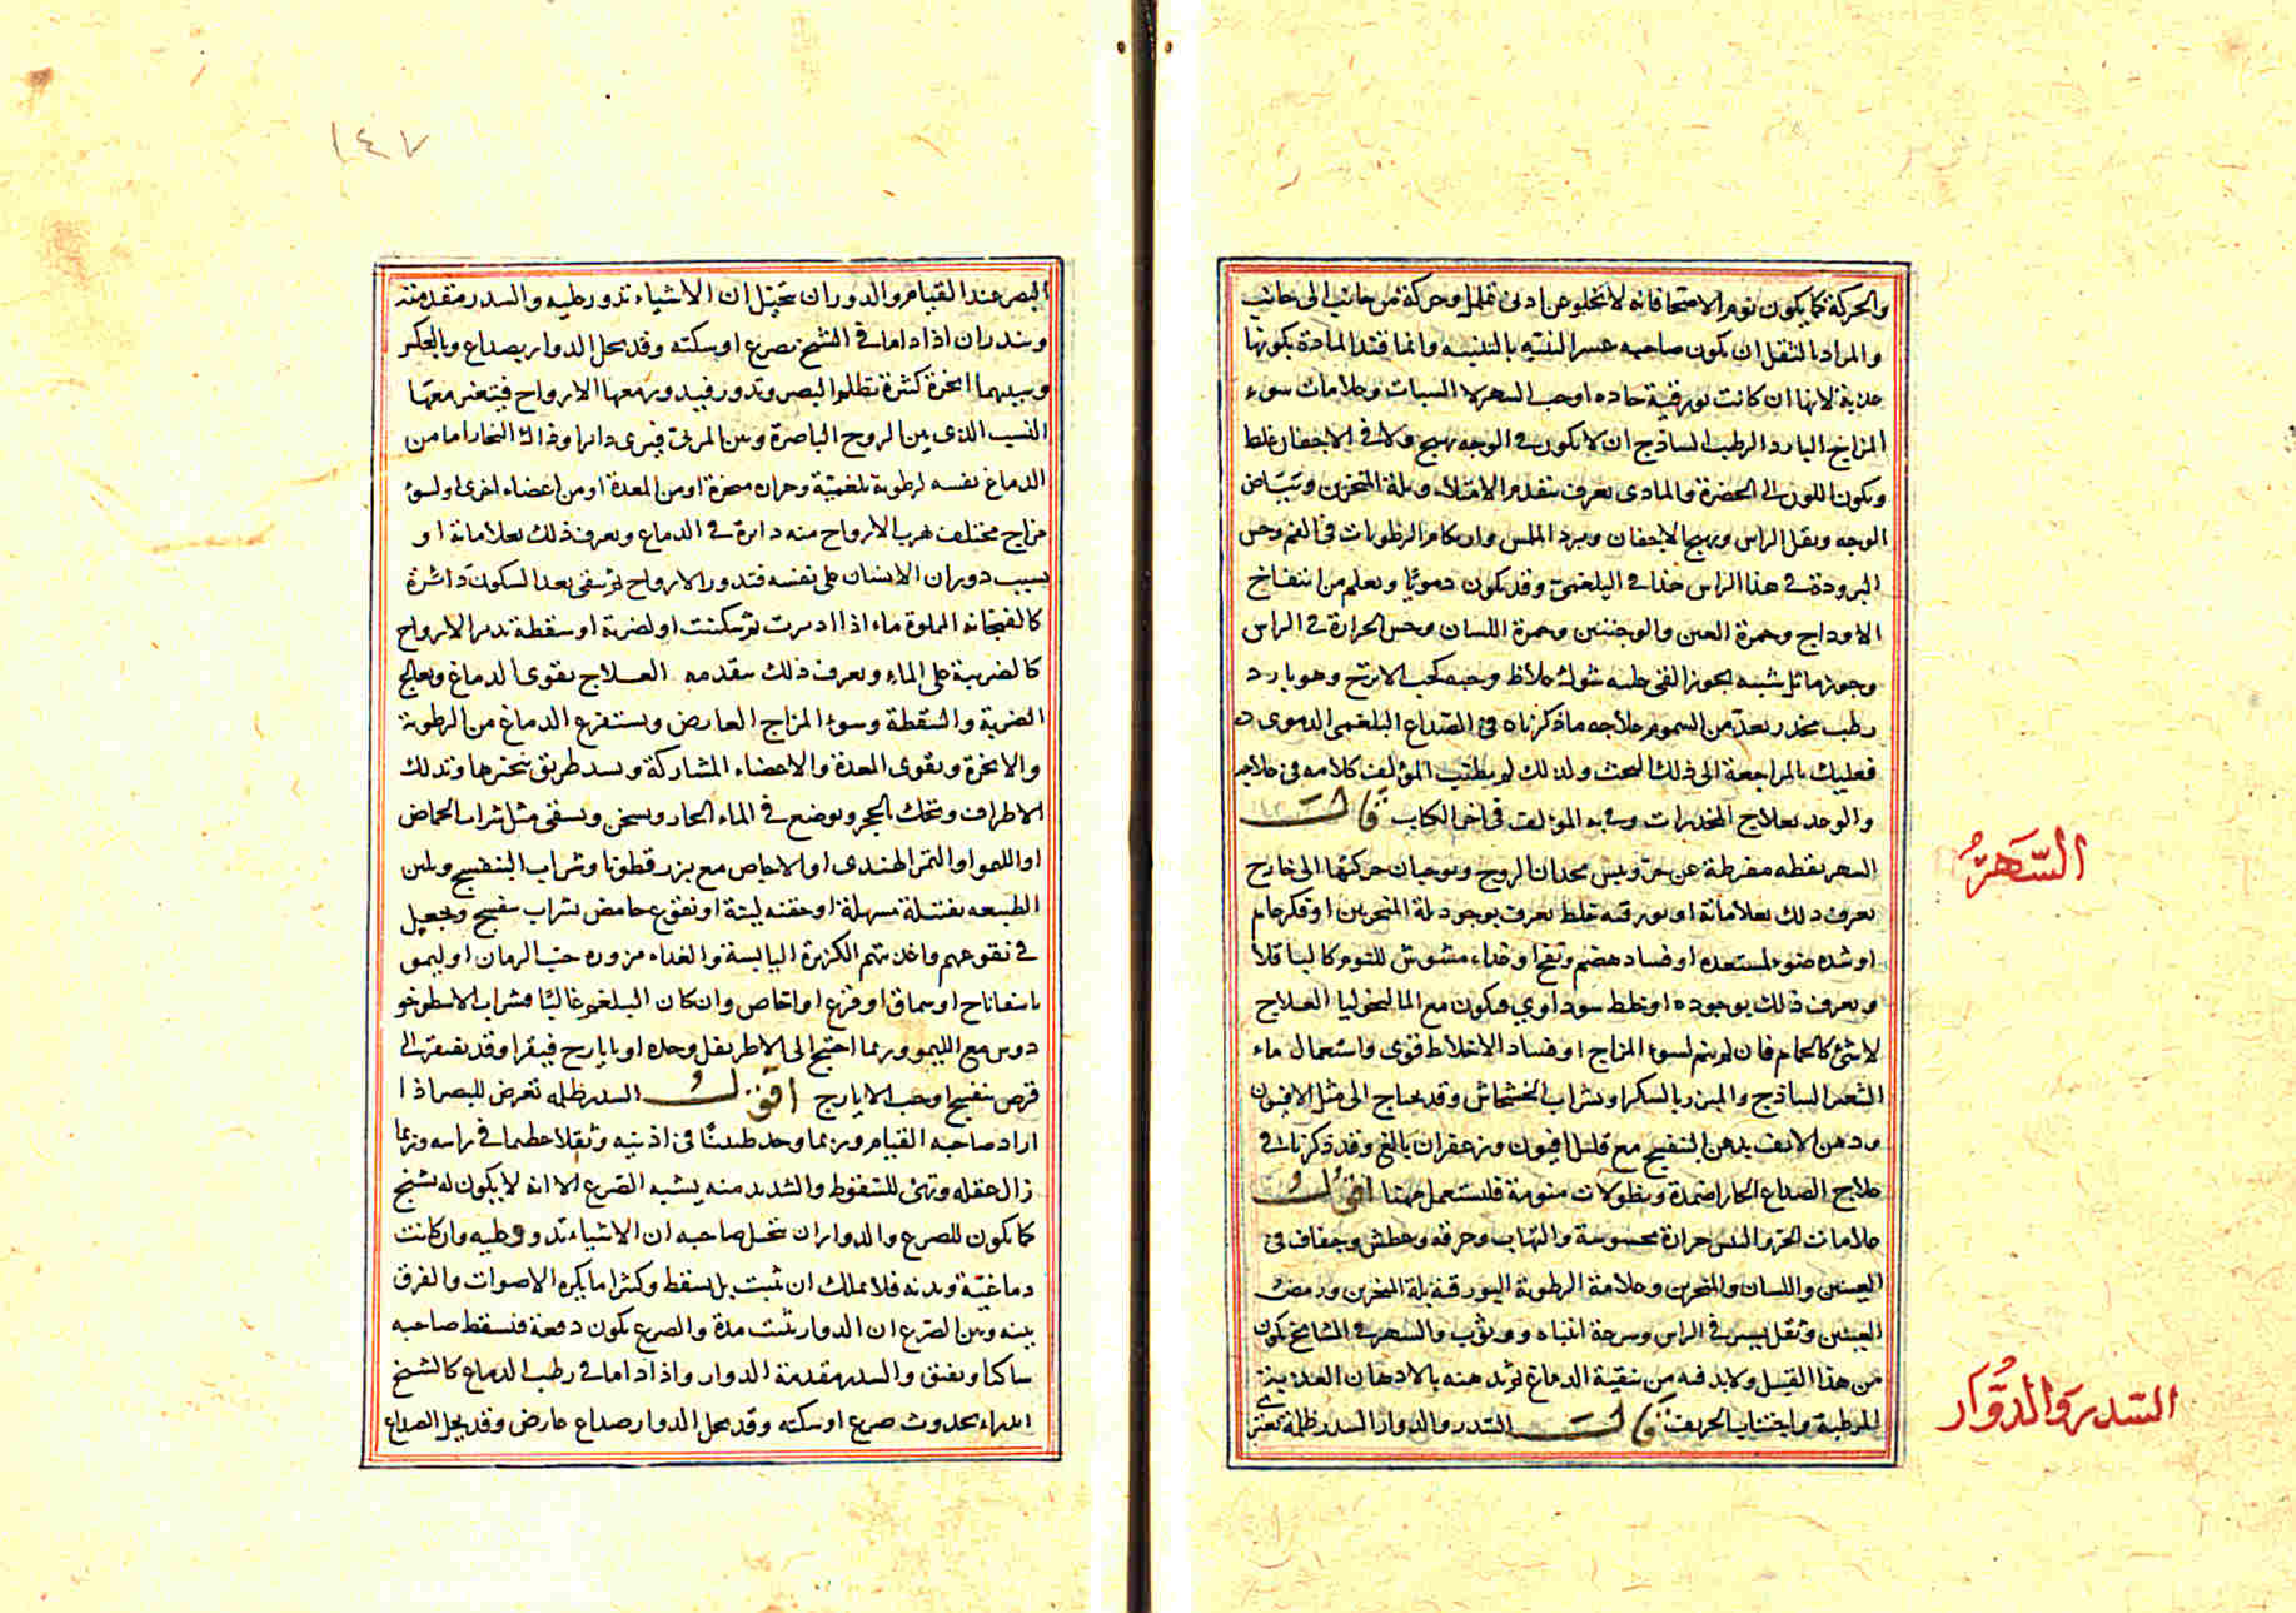 والحركة كما يكون نوم الاصحا فانه لا يخلو عن ادنى تململ وحركة من جانب الى جانب
والمراد بالثقل ان يكون صاحبه عسر التنبه بالتنبيه وانما قيد المادة بكونها
عذبة لانها ان كانت بورقية حاده اوجب السهر لا السبات وعلامات سوء
المزاج البارد الرطب الساذج ان لا يكون في الوجه تهيج ولا في الاجفان غلظ
ويكون اللون الى الخضرة والمادى يعرف بتقدم الامتلاء وبلة المنخرين وتبياض
الوجه وثقل الراس وتهيج الاجفان وبرد الملمس وان كام الرطوبات في الفم وحس
البرودة في هذا الراس هذا في البلغمى وقد يكون دمويا ويعلم من انتفاخ
الاوداج وحمرة العين والوجنتين وحمرة اللسان وحس الحرارة في الراس
وجوز ماثل شبيه بجوز القئ عليه شوك غلاظ وحبه كحب الاترج وهو بارد
رطب مخدر يعد من السموم علاجه ما ذكرناه في الصداع البلغمى الدموى
فعليك بالمراجعة الى ذلك البحث ولذلك لم يطنب المؤلف كلامه في علاجه
والوحد بعلاج المخدرات وفى به المؤلف في اخر الكتاب قال
السهر يقظه مفرطة عن حر ويبس يحدان الروح ويوجبان حركتها الى خارج
يعرف ذلك بعلاماته او بورقية خلط يعرف بوجود بلة المنخرين او فكر عام
او شده ضوء لمستعده او فساد هضم ونفخ او غذاء مشوش للنوم كالباقلا
ويعرف ذلك بوجوده او خلط سوداوي ويكون مع المالنخوليا العلاج
لا شئ كالحمام فان لم ينم لسوء المزاج او فساد الاخلاط قوى واستعمال ماء
الشعير الساذج والمبزر بالسكر او بشراب الخشخاش وقد يحتاج الى مثل الافيون
ودهن الانف بدهن البنفسج مع قليل افيون وزعفران بالغ وقد ذكرنا في
علاج الصداع الحار اضمدة ونطولات منومة فلتستعمل ههنا اقول
علامات الحر واليبس حرارة محسوسة والتهاب وحرقة وعطش وجفاف في
العينين واللسان والمنخرين وعلامة الرطوبة البورقية بلة المنخرين ورمص
العينين وثقل يسير في الراس وسرعة انتباه ووثوب والسهر في المشايخ يكون
من هذا القبيل ولا بد فيه من تنقية الدماغ ثم تدهنه بالادهان العذبة
المرطبة واجتناب الحريف قال السدر والدوار السدر ظلمة تعترى
السَّهَرُ
السّدر وَالدُّوَار
١٤٧
البصر عند القيام والدوران تخيل ان الاشياء تدور عليه والسدر مقدمته
وينذران اذا داما في الشيخ بصرع او سكته وقد يحل الدوار بصداع وبالعكس
وسببهما ابخرة كثيرة تظلم البصر وتدور فيدور معها الارواح فيتغير معها
النسب الذى بين الروح الباصرة وبين المرئى فيرى دائرا وذاك البخار اما من
الدماغ نفسه لرطوبة بلغمية وحراره مبخرة او من المعدة او من اعضاء اخرى او لسوء
مزاج مختلف هرب الارواح منه دائرة في الدماغ ويعرف ذلك بعلاماته او
بسبب دوران الانسان على نفسه فتدور الارواح ثم يبقى بعد السكون دائرة
كالفنجانه المملوة ماء اذا ادبرت ثم سكنت او لضربة او سقطة تدير الارواح
كالضربة على الماء ويعرف ذلك بتقدمه العلاج يقوى الدماغ ويعالج
الضربة والسقطة وسوء المزاج العارض ويستفرغ الدماغ من الرطوبة
والابخرة ويقوى المعدة والاعضاء المشاركة ويسد طريق تبخيرها وتدلك
الاطراف وتحك بالحجر ويوضع في الماء الحار ويسخن ويسقى مثل شراب الحماض
او الليمو او التمر الهندى او الاجاص مع بزر قطونا وشراب البنفسج ويلين
الطبيعه بفتيلة مسهلة او حقنه لينة او نقوع حامض بشراب بنفسج ويجعل
في نقوعهم واغذيتهم الكزبرة اليابسة والغداء مزوره حب الرمان او ليمو
باسفاناخ او سماق او قرع او اجاص وان كان البلغم غالبًا فشراب الاسطوخو
دوس مع الليمو وربما احتيج الى الاطريفل وحده او بايارج فيقرا وقد يفتقر الى
قرص بنفسج او حب الايارج اقول السدر ظلمه تعرض للبصر اذا
اراد صاحبه القيام وربما وجد طنينًا في اذنيه وثقلا عظيما في راسه وربما
زال عقله وتهئ للسقوط والشديد منه يشبه الصرع الا انه لا يكون له تشنج
كما يكون للصرع والدوار ان تخيل صاحبه ان الاشياء تدور عليه وان كانت
دماغيّة وبدنه فلا يملك ان يثبت بل يسقط وكثيرا ما يكره الاصوات والفرق
بينه وبين الصرع ان الدوار يثبت مدة والصرع يكون دفعة فيسقط صاحبه
ساكنا ويفيق والسدر مقدمة الدوار واذا داما في رطب الدماغ كالشيخ
انذراء بحدوث صرع او سكته وقد يحل الدوار صداع عارض وقد يحل الصداع